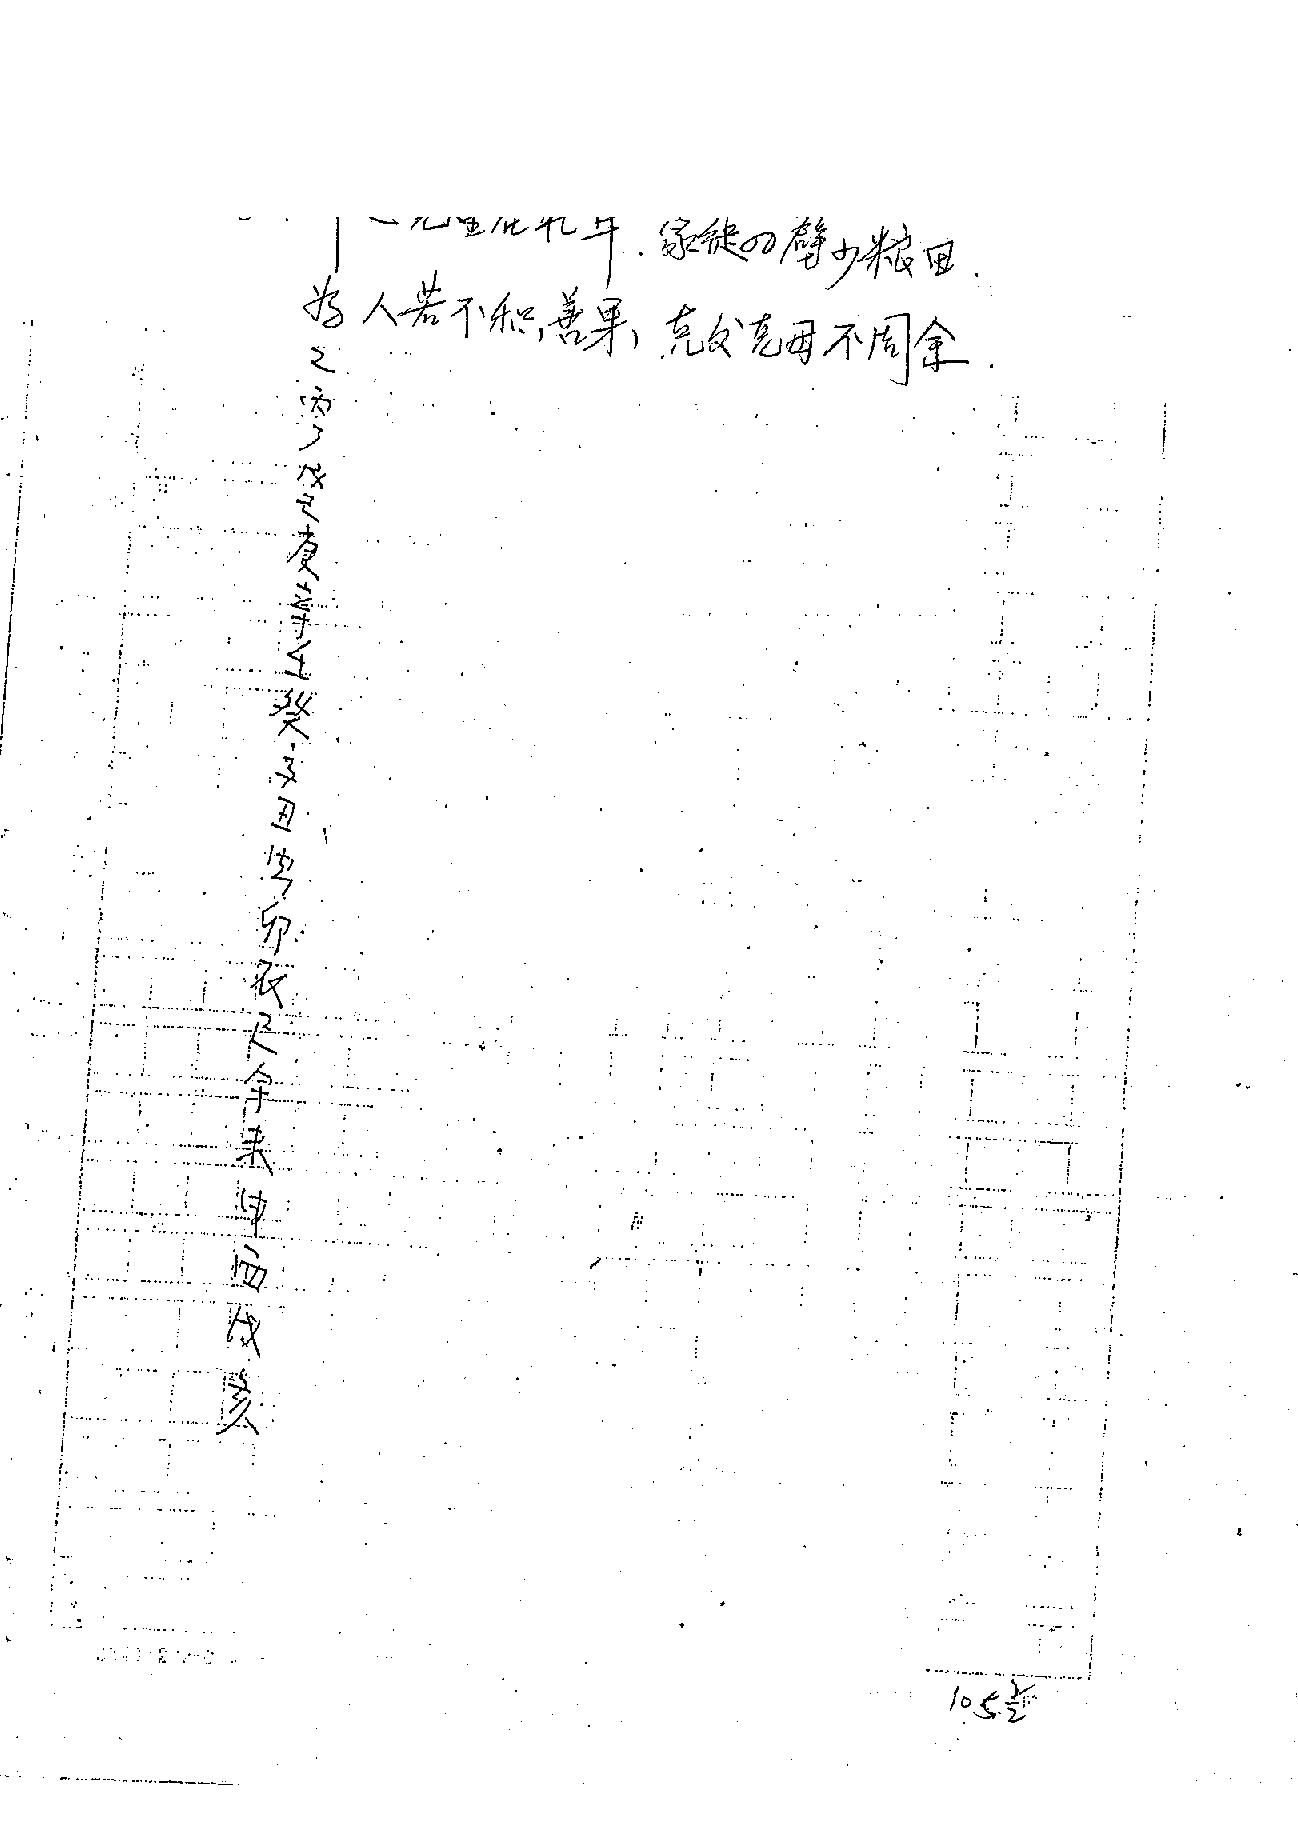 年.家徒四壁少粮田.
为人若不积善果,克父克母不周全.
乙丙丁戊己庚辛壬癸子丑寅卯辰巳午未申酉戌亥
105